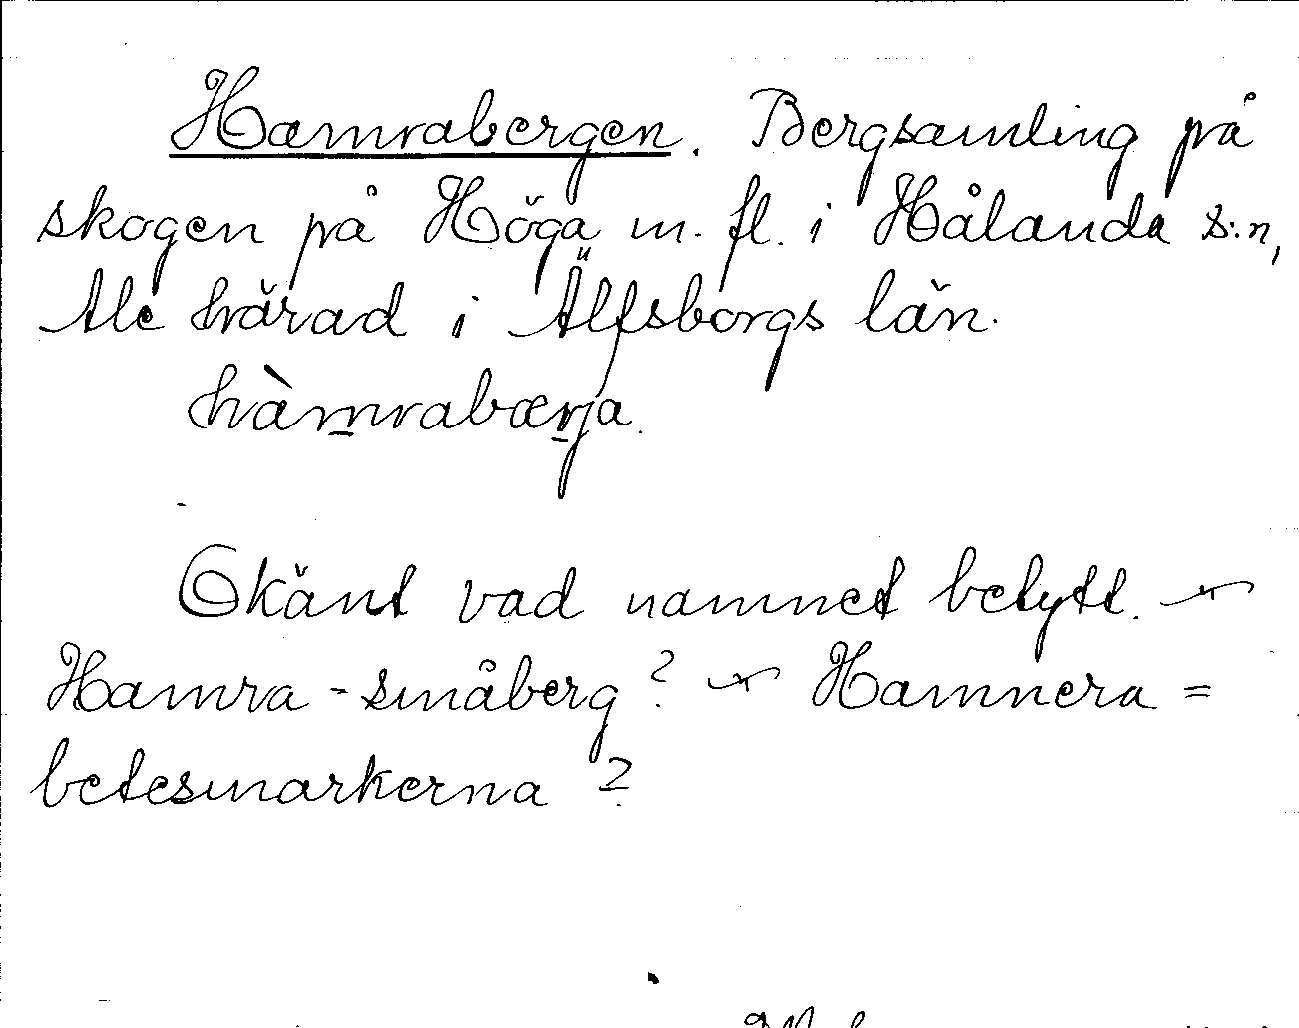 Hamrabergen. Bergsamling på
skogen på Höga m. fl. i Hålanda s:n,
Ale härad i Älfsborgs län.
hàm̲rabær̲ja.
Okänt vad namnet betytt. —
Hamra - småberg? — Hamnera =
betesmarkerna?